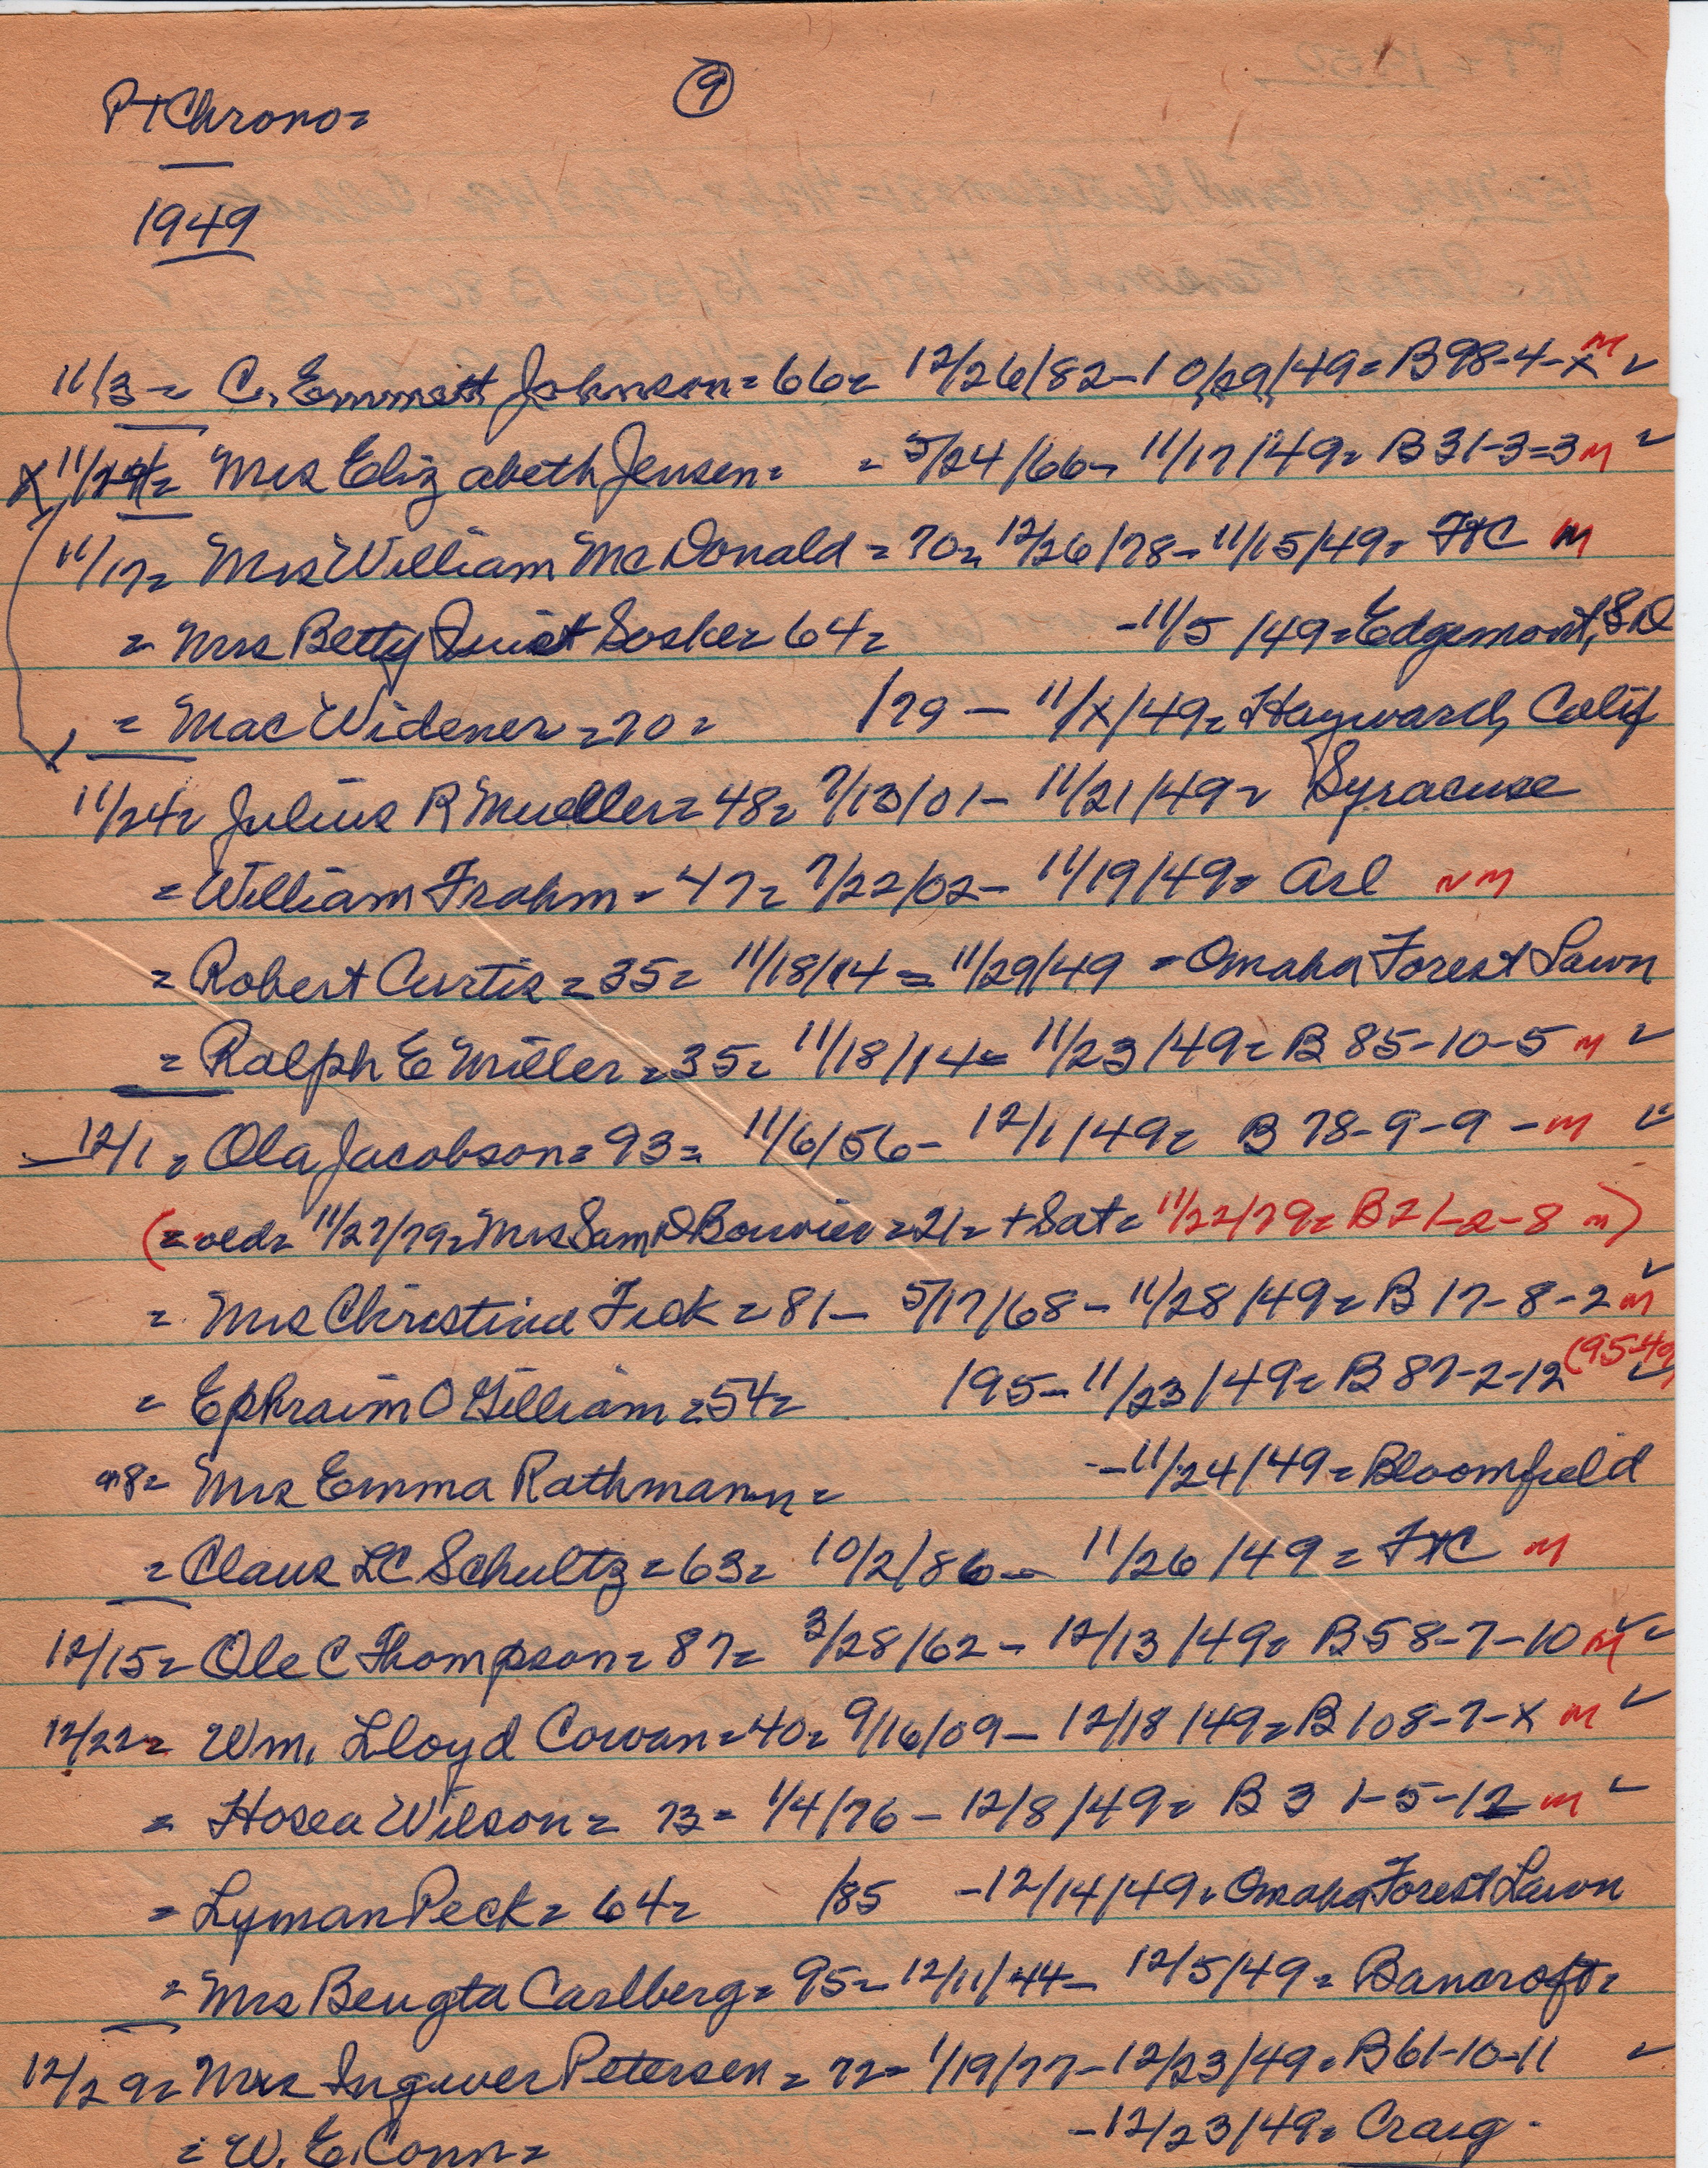 9
P+Chrono=
1949
11/3= C. Emmett Johnson=66= 12/26/82-10/29/49= B98-4-x m ✓
x 11/24= Mrs Elizabeth Jensen= = 5/24/66- 11/17/49= B 31-3=3 m ✓
11/17= Mrs William McDonald=70= 12/26/78-11/15/49= m
= Mrs Betty Sosker=64= -11/5/49=Edgemont, SD
= Mac Widener=70= /79 - 11/x/49= Hayward, Calif
11/24= Julius R Mueller=48= 7/13/01- 11/21/49= Syracuse
=William Frahm=47= 7/22/02- 11/19/49= Arl NM
= Robert Curtis=35= 11/18/14= 11/29/49 =Omaha Forest Lawn
= Ralph E Miller=35= 11/18/14= 11/23/49= B 85-10-5 m ✓
12/1= Ola Jacobson=93= 11/6/56- 12/1/49= B 78-9-9 -m ✓
(= 11/27/79=Mrs Sam D Bouvier=21= +Sat= 11/22/79= B21-2-8 m)
= Mrs Christina Feck=81- 5/17/68-11/28/49= B 17-8-2 m ✓
= Ephraim O Gilliam=54= /95-11/23/49= B 87-2-12 (95-49) ✓
on8= Mrs Emma Rathmann= -11/24/49=Bloomfield
=Claus LC Schultz=63= 10/2/86- 11/26/49= m
12/15= Ole C Thompson=87= 3/28/62- 12/13/49= B58-7-10 m ✓
12/22= Wm. Lloyd Cowan=40= 9/16/09- 12/18/49=B 108-7-x m ✓
= Hosea Wilson= 73= 1/4/76- 12/8/49= B 31-5-12 m ✓
= Lyman Peck=64= /85 -12/14/49=Omaha Forest Lawn
=Mrs Bengta Carlberg=95-12/11/44- 12/5/49= Bancroft=
12/29= Mrs Inguver Petersen=72=1/19/77-12/23/49=B61-10-11 ✓
= W. E. Conn= -12/23/49= Craig-